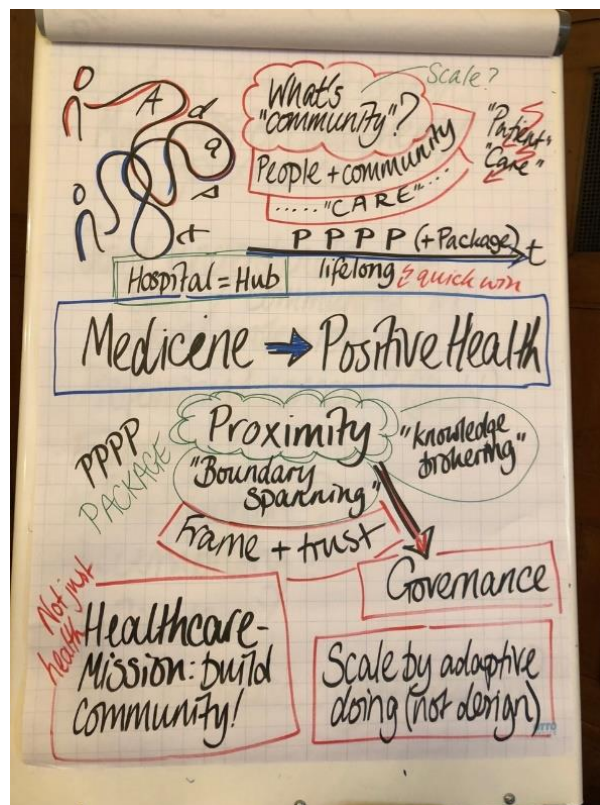 Adapt
What's
"community"?
Scale?
People + community
....."CARE"....
"Patient"
"Care"
P P P P (+Package)
t
Hospital = Hub
lifelong
quick win
Medicine → Positive Health
PPPP
PACKAGE
Proximity
"Boundary
spanning"
"knowledge
brokering"
Frame + trust
Governance
Not just
health
Healthcare-
Mission: build
Community!
Scale by adaptive
doing (not design)